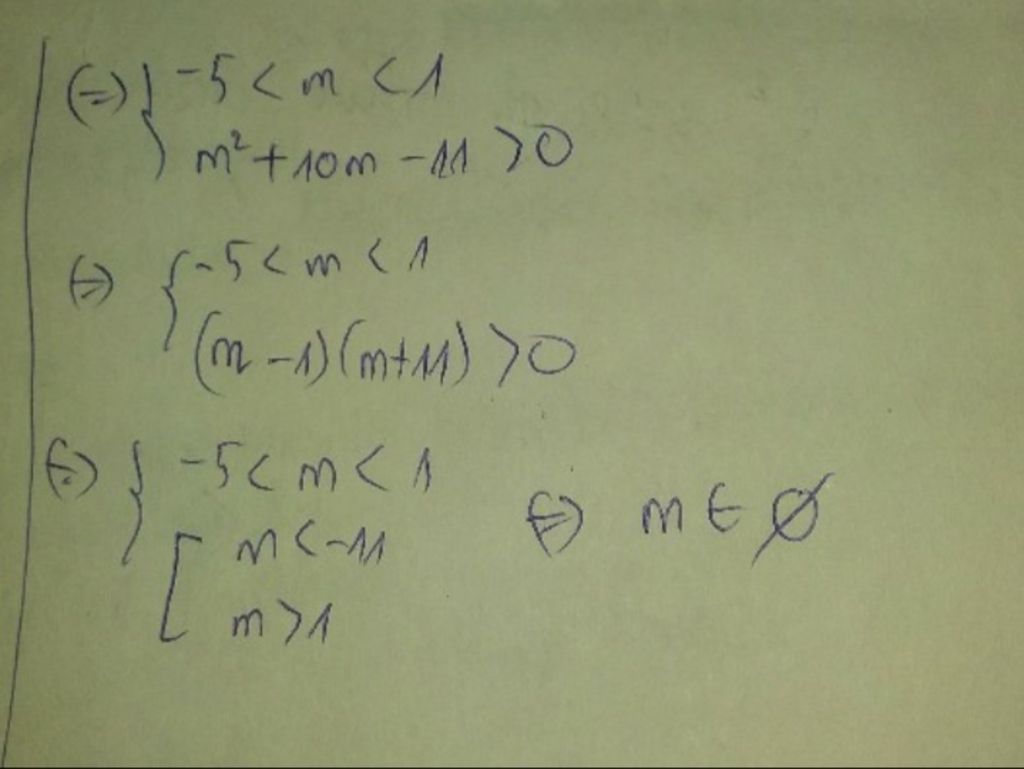 ⇔ { -5 < m < 1
m² + 10m - 11 > 0
⇔ { -5 < m < 1
(m - 1)(m + 11) > 0
⇔ { -5 < m < 1
[ m < -11 ⇔ m ∈ ∅
m > 1